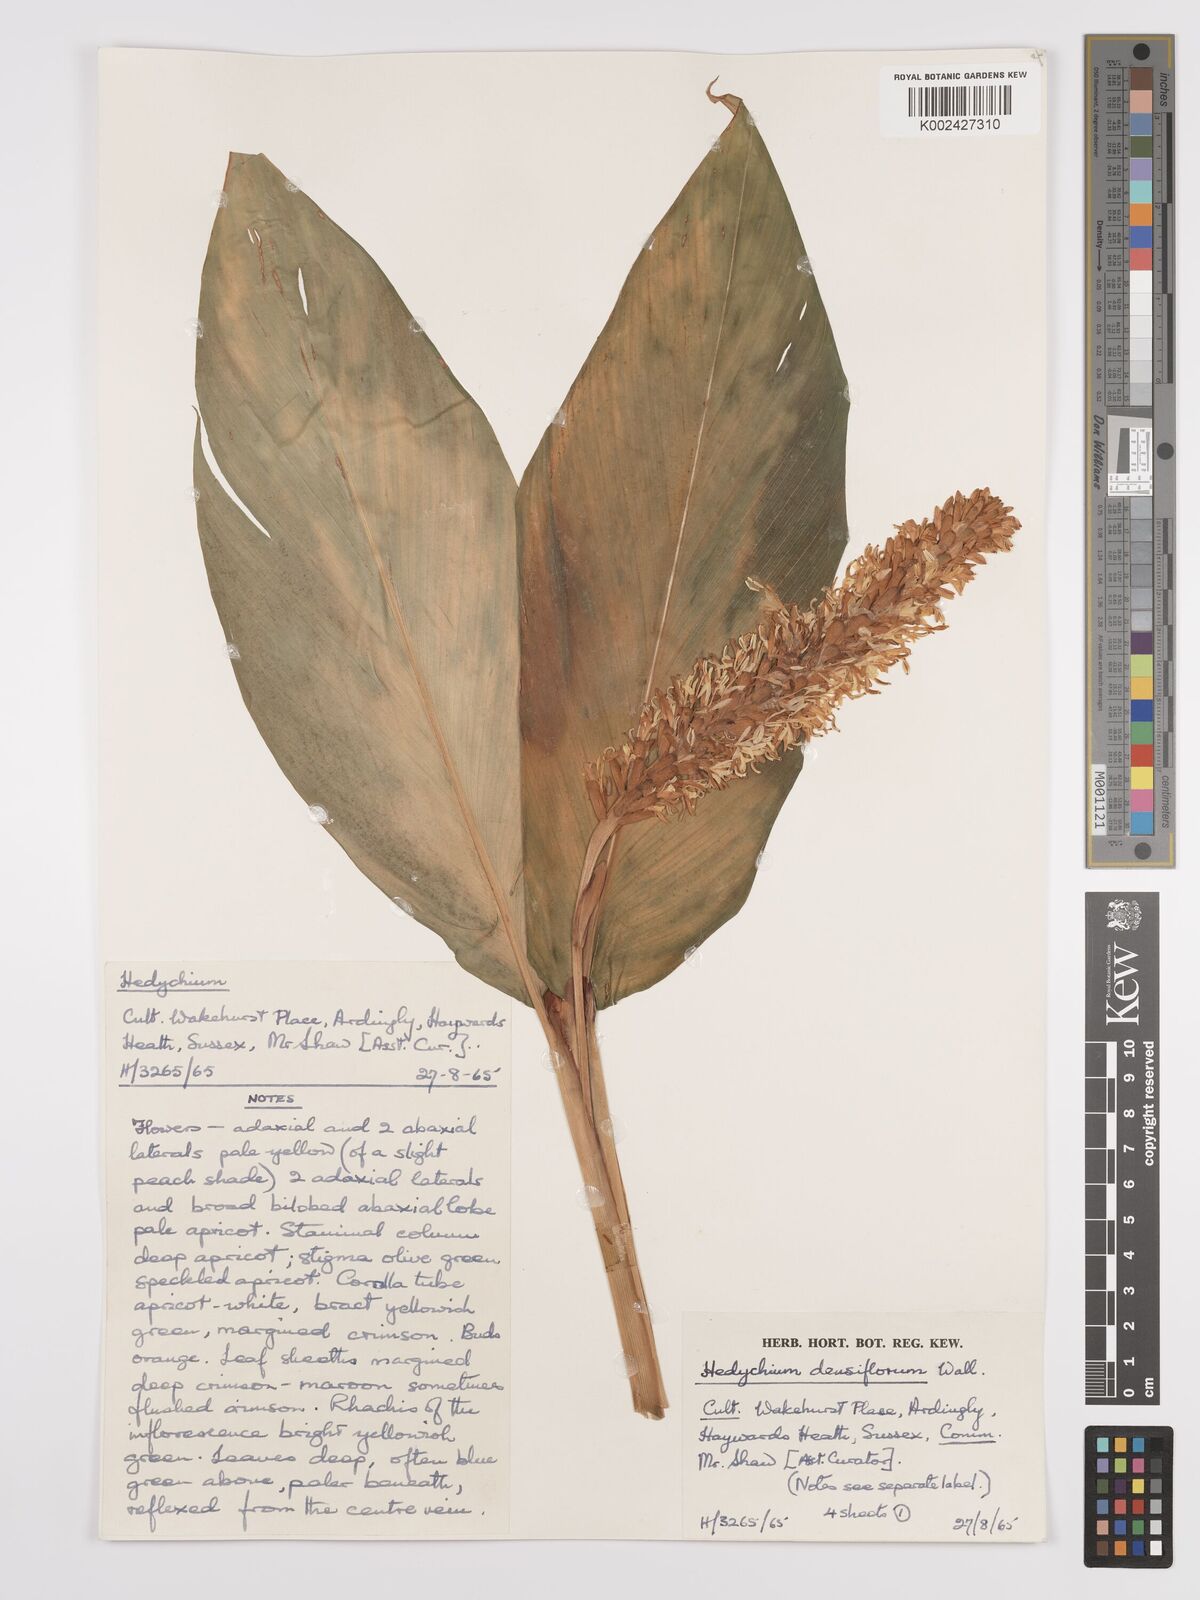 ROYAL BOTANIC GARDENS KEW
K002427310
Hedychium
Cult. Wakehurst Place, Ardingly, Haywards
Heath, Sussex, Mr Shaw [Asst. Cur.]..
H/3265/65 27-8-65
NOTES
Flowers — adaxial and 2 abaxial
laterals pale yellow (of a slight
peach shade) 2 adaxial laterals
and broad bilobed abaxial lobe
pale apricot. Staminal column
deep apricot; stigma olive green
speckled apricot. Corolla tube
apricot-white, bract yellowish
green, margined crimson. Buds
orange. Leaf sheaths margined
deep crimson-maroon sometimes
flushed crimson. Rhachis of the
inflorescence bright yellowish
green. Leaves deep, often blue
green above, paler beneath,
reflexed from the centre vein.
HERB. HORT. BOT. REG. KEW.
Hedychium densiflorum Wall.
Cult. Wakehurst Place, Ardingly,
Haywards Heath, Sussex, Comm.
Mr. Shaw [Asst. Curator].
(Notes see separate label.)
4 sheets ①
H/3265/65 27/8/65
inches
Density
Don Williams
M001121
centimetres
Royal Botanic Gardens
Kew
0 1 2 3 4 5 6 7 8 9 10
cm
copyright reserved